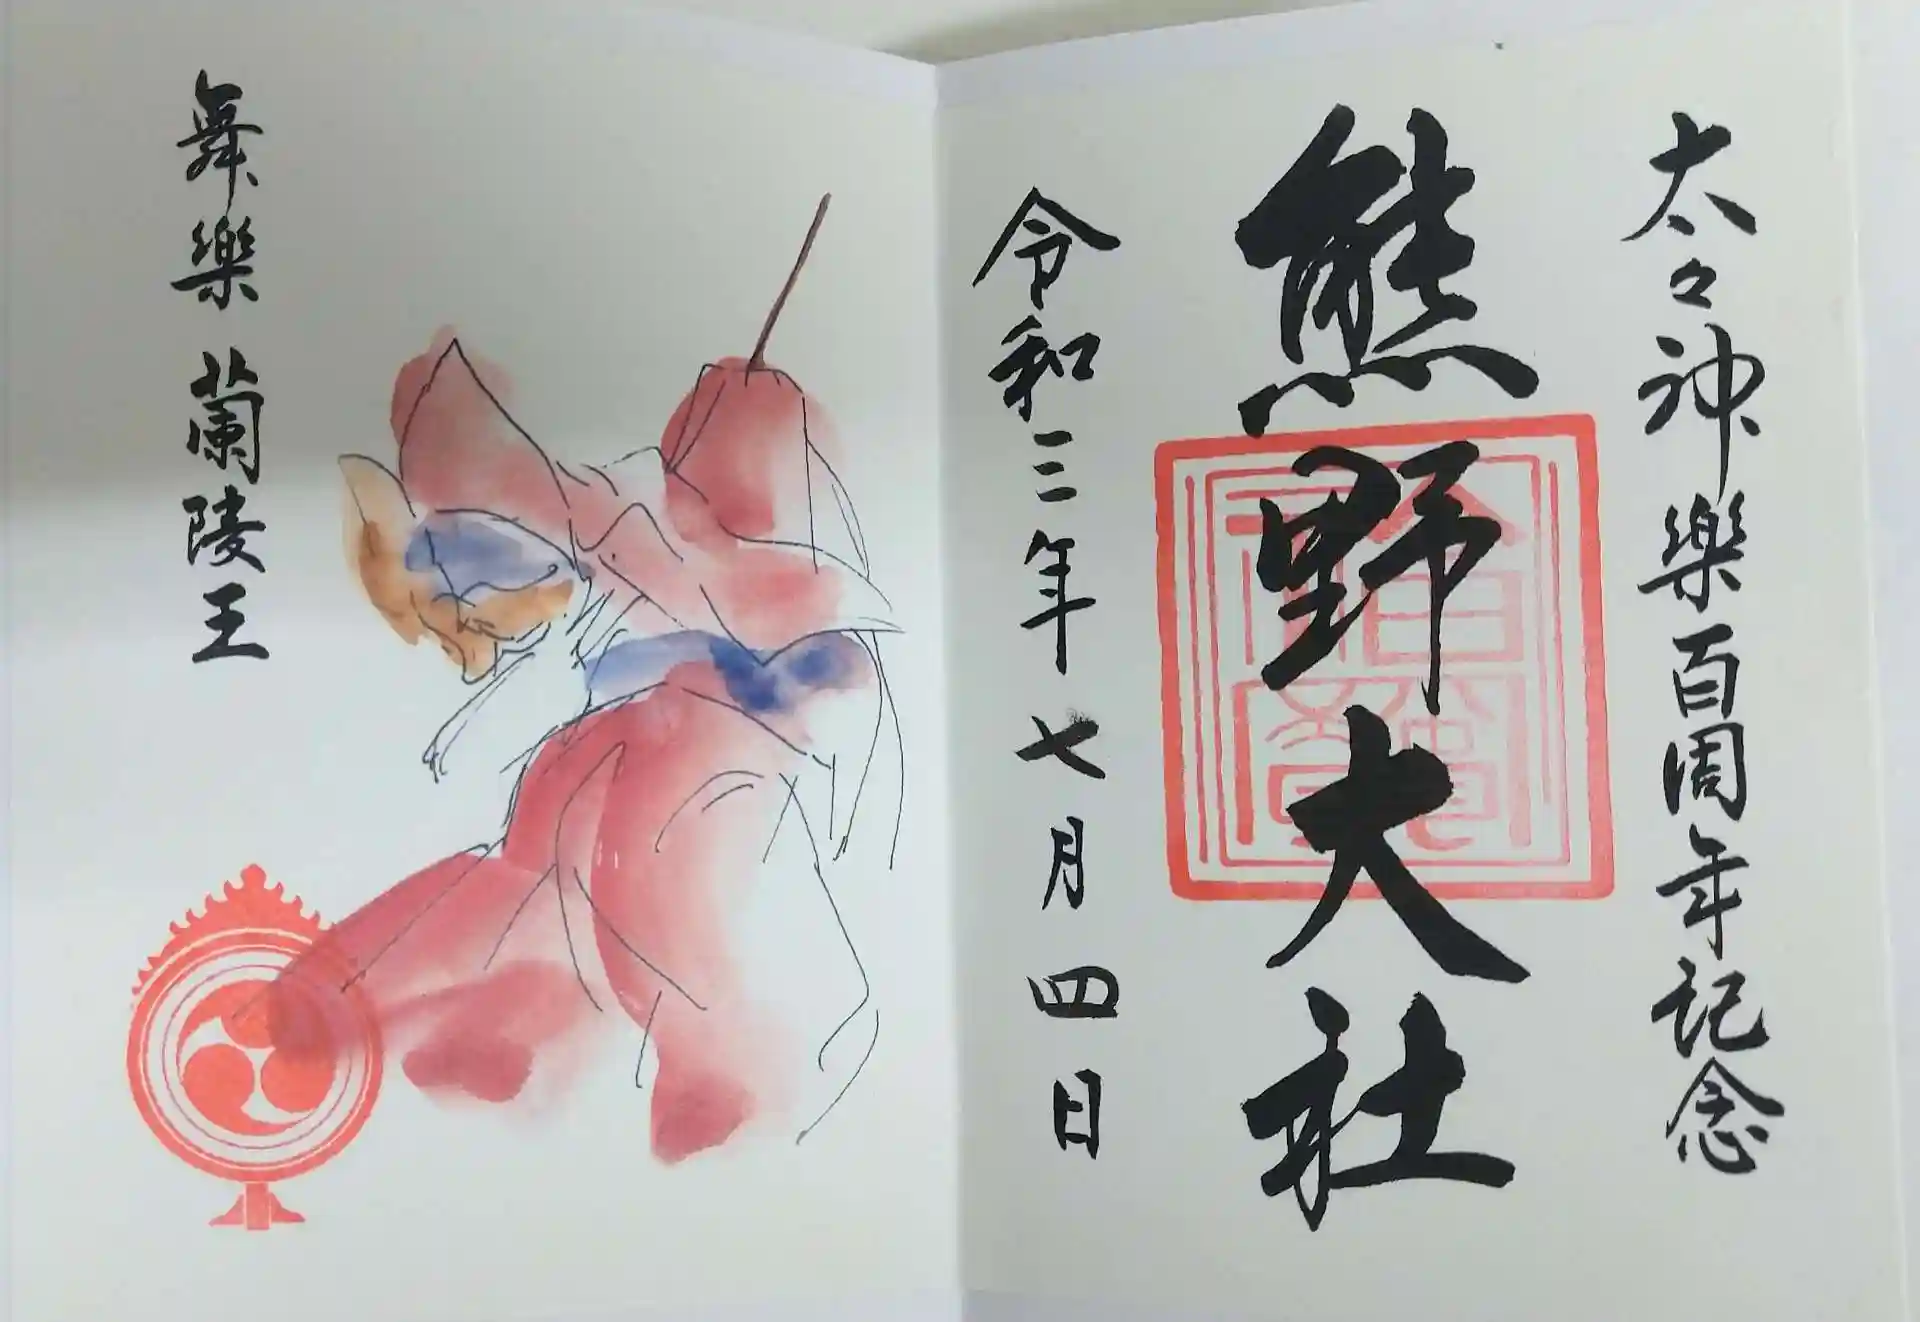 太々神樂百周年记念
熊野大社
令和三年七月四日
舞樂 蘭陵王